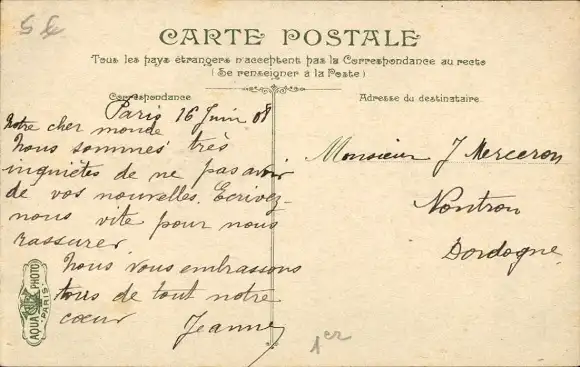 5 €
CARTE POSTALE
Tous les pays étrangers n'acceptent pas la Correspondance au recto
(Se renseigner à la Poste)
Correspondance
Adresse du destinataire
Paris 16 Juin 08
Notre cher monde
Nous sommes très
inquiètes de ne pas avoir
de vos nouvelles. Ecrivez-
nous vite pour nous
rassurer
Nous vous embrassons
tous de tout notre
cœur
Jeanne
Monsieur J Merceron
Nontron
Dordogne
AQUA PHOTO
PARIS
1er